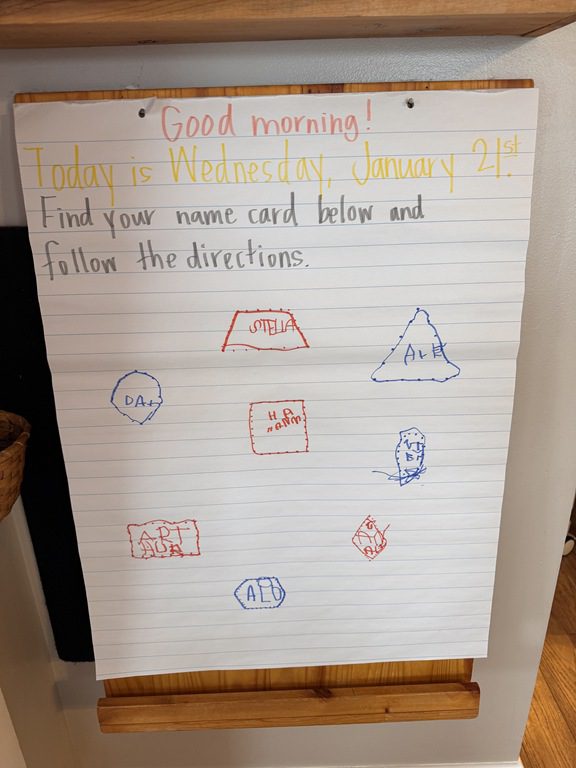 Good morning!
Today is Wednesday, January 21st.
Find your name card below and
follow the directions.
STELLA
ALE
DA
H A
ART
ALO